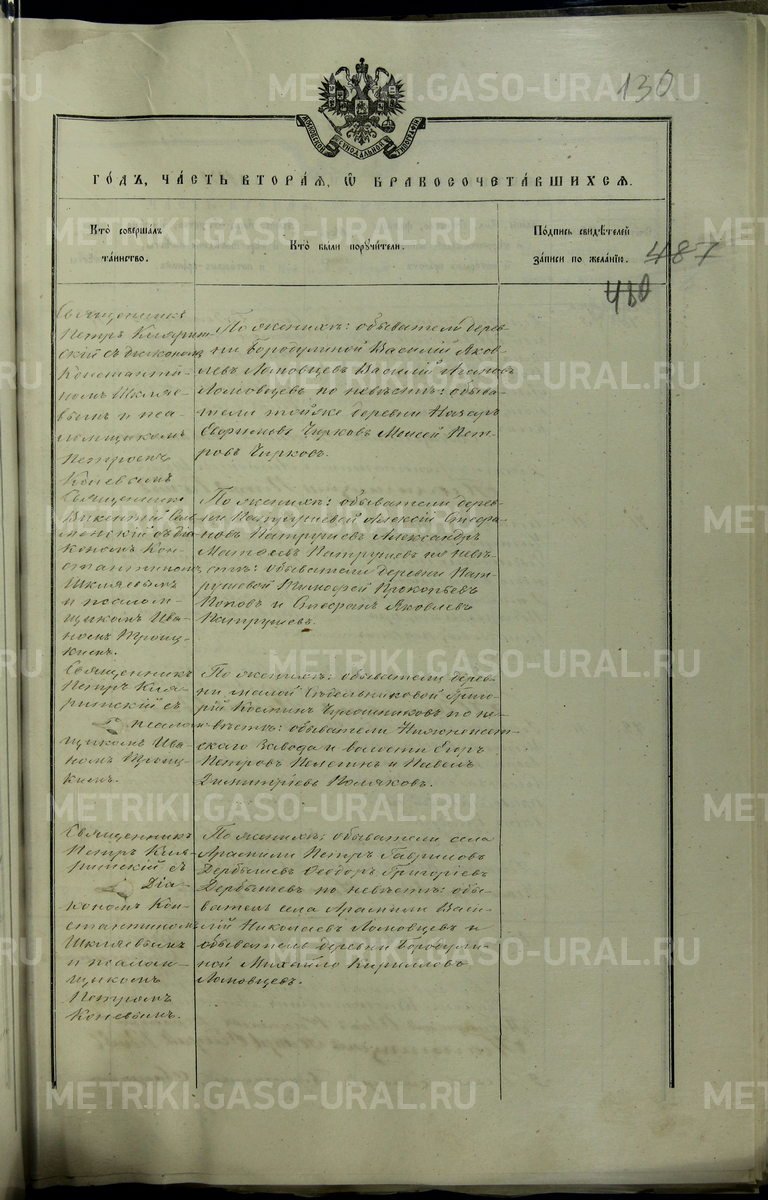 130
МОСКОВСКОЙ СѴНОДАЛЬНОЙ ТИПОГРАФІИ
ГОДЪ, ЧАСТЬ ВТОРАЯ, Ѡ БРАКОСОЧЕТАВШИХСЯ.
Кто совершалъ
таинство.
Кто были поручители.
Подпись свидѣтелей
записи по желанію.
487
480
Священникъ
Петръ
скій съ діакономъ
Константи-
номъ Шкляе-
вымъ и пса-
ломщикомъ
Петромъ
Коневымъ
По женихѣ: обыватели дерев-
ни Бородулиной Василій Яков-
левъ Ломовцевъ Василій
Ломовцевъ по невѣстѣ: обыва-
тели тойже деревни Назаръ
Ефимовъ Чирковъ Моисей Пет-
ровъ Чирковъ.
Священникъ
Викентій
съ діа-
кономъ Кон-
стантиномъ
Шкляевымъ
и псалом-
щикомъ Ива-
номъ Троиц-
кимъ.
По женихѣ: обыватели дерев-
ни Патрушевой Алексій Стефа-
новъ Патрушевъ Александръ
Матвѣевъ Патрушевъ по невѣ-
стѣ: обыватели деревни Пат-
рушевой Тимофей Прокопьевъ
Поповъ и Стефанъ Яковлевъ
Патрушевъ.
Священникъ
Петръ
съ
псалом-
щикомъ Ива-
номъ Троиц-
кимъ.
По женихѣ: обыватели дерев-
ни малой Сѣдельниковой Григо-
рій Космин по не-
вѣстѣ: обыватели Нижнеисет-
скаго Завода и волости Егоръ
Петровъ и Павелъ
Димитріевъ Поляковъ.
Священникъ
Петръ
съ
Діа-
кономъ Кон-
стантиномъ
Шкляевымъ
и псалом-
щикомъ
Петромъ
Коневымъ.
По женихѣ: обыватели села
Арамили Петръ Гавриловъ
Дербышевъ Ѳеодоръ Григоріевъ
Дербышевъ по невѣстѣ: обы-
ватель села Арамили Васи-
лій Николаевъ Ломовцевъ и
обыватель деревни Бородули-
ной Михаило Кирилловъ
Ломовцевъ.
METRIKI.GASO-URAL.RU